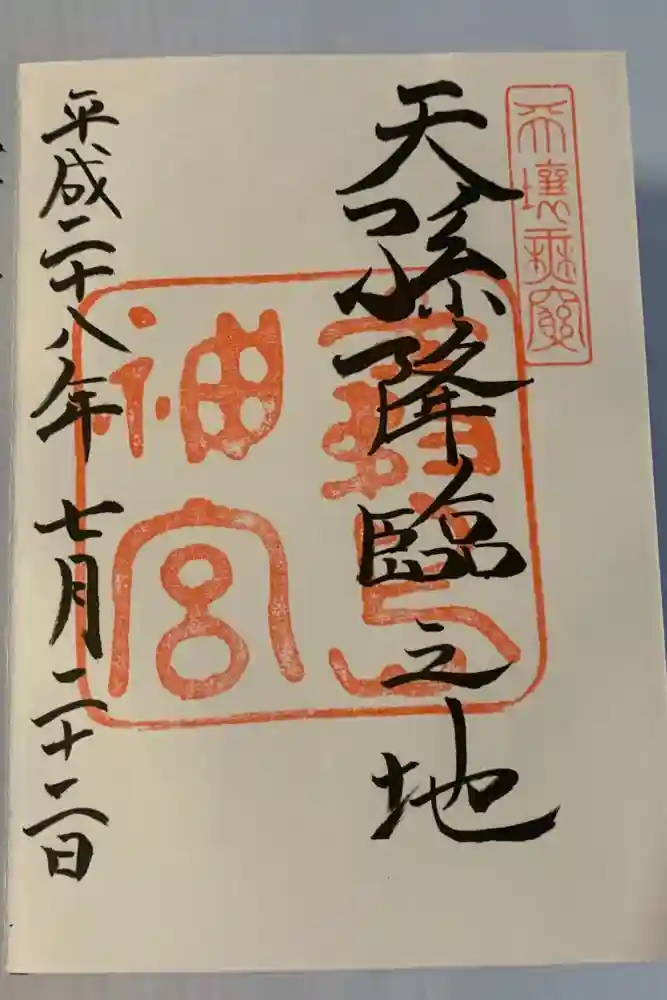 天壤無窮
天孫降臨之地
霧島
神宮
平成二十八年 七月二十二日